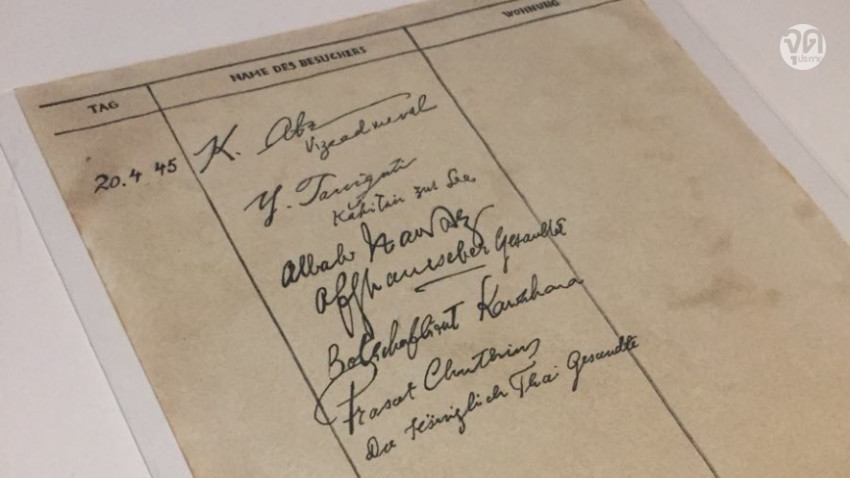 TAG NAME DES BESUCHERS WOHNUNG
20.4.45 K. Abe
Vizeadmiral
Y. Taniguti
Kapitän zur See
Allah Nawaz
Afghanischer Gesandte
Botschaftsrat Kawahara
Prasat Chuthin
Der königlich Thai Gesandte
จุด
ประกาย